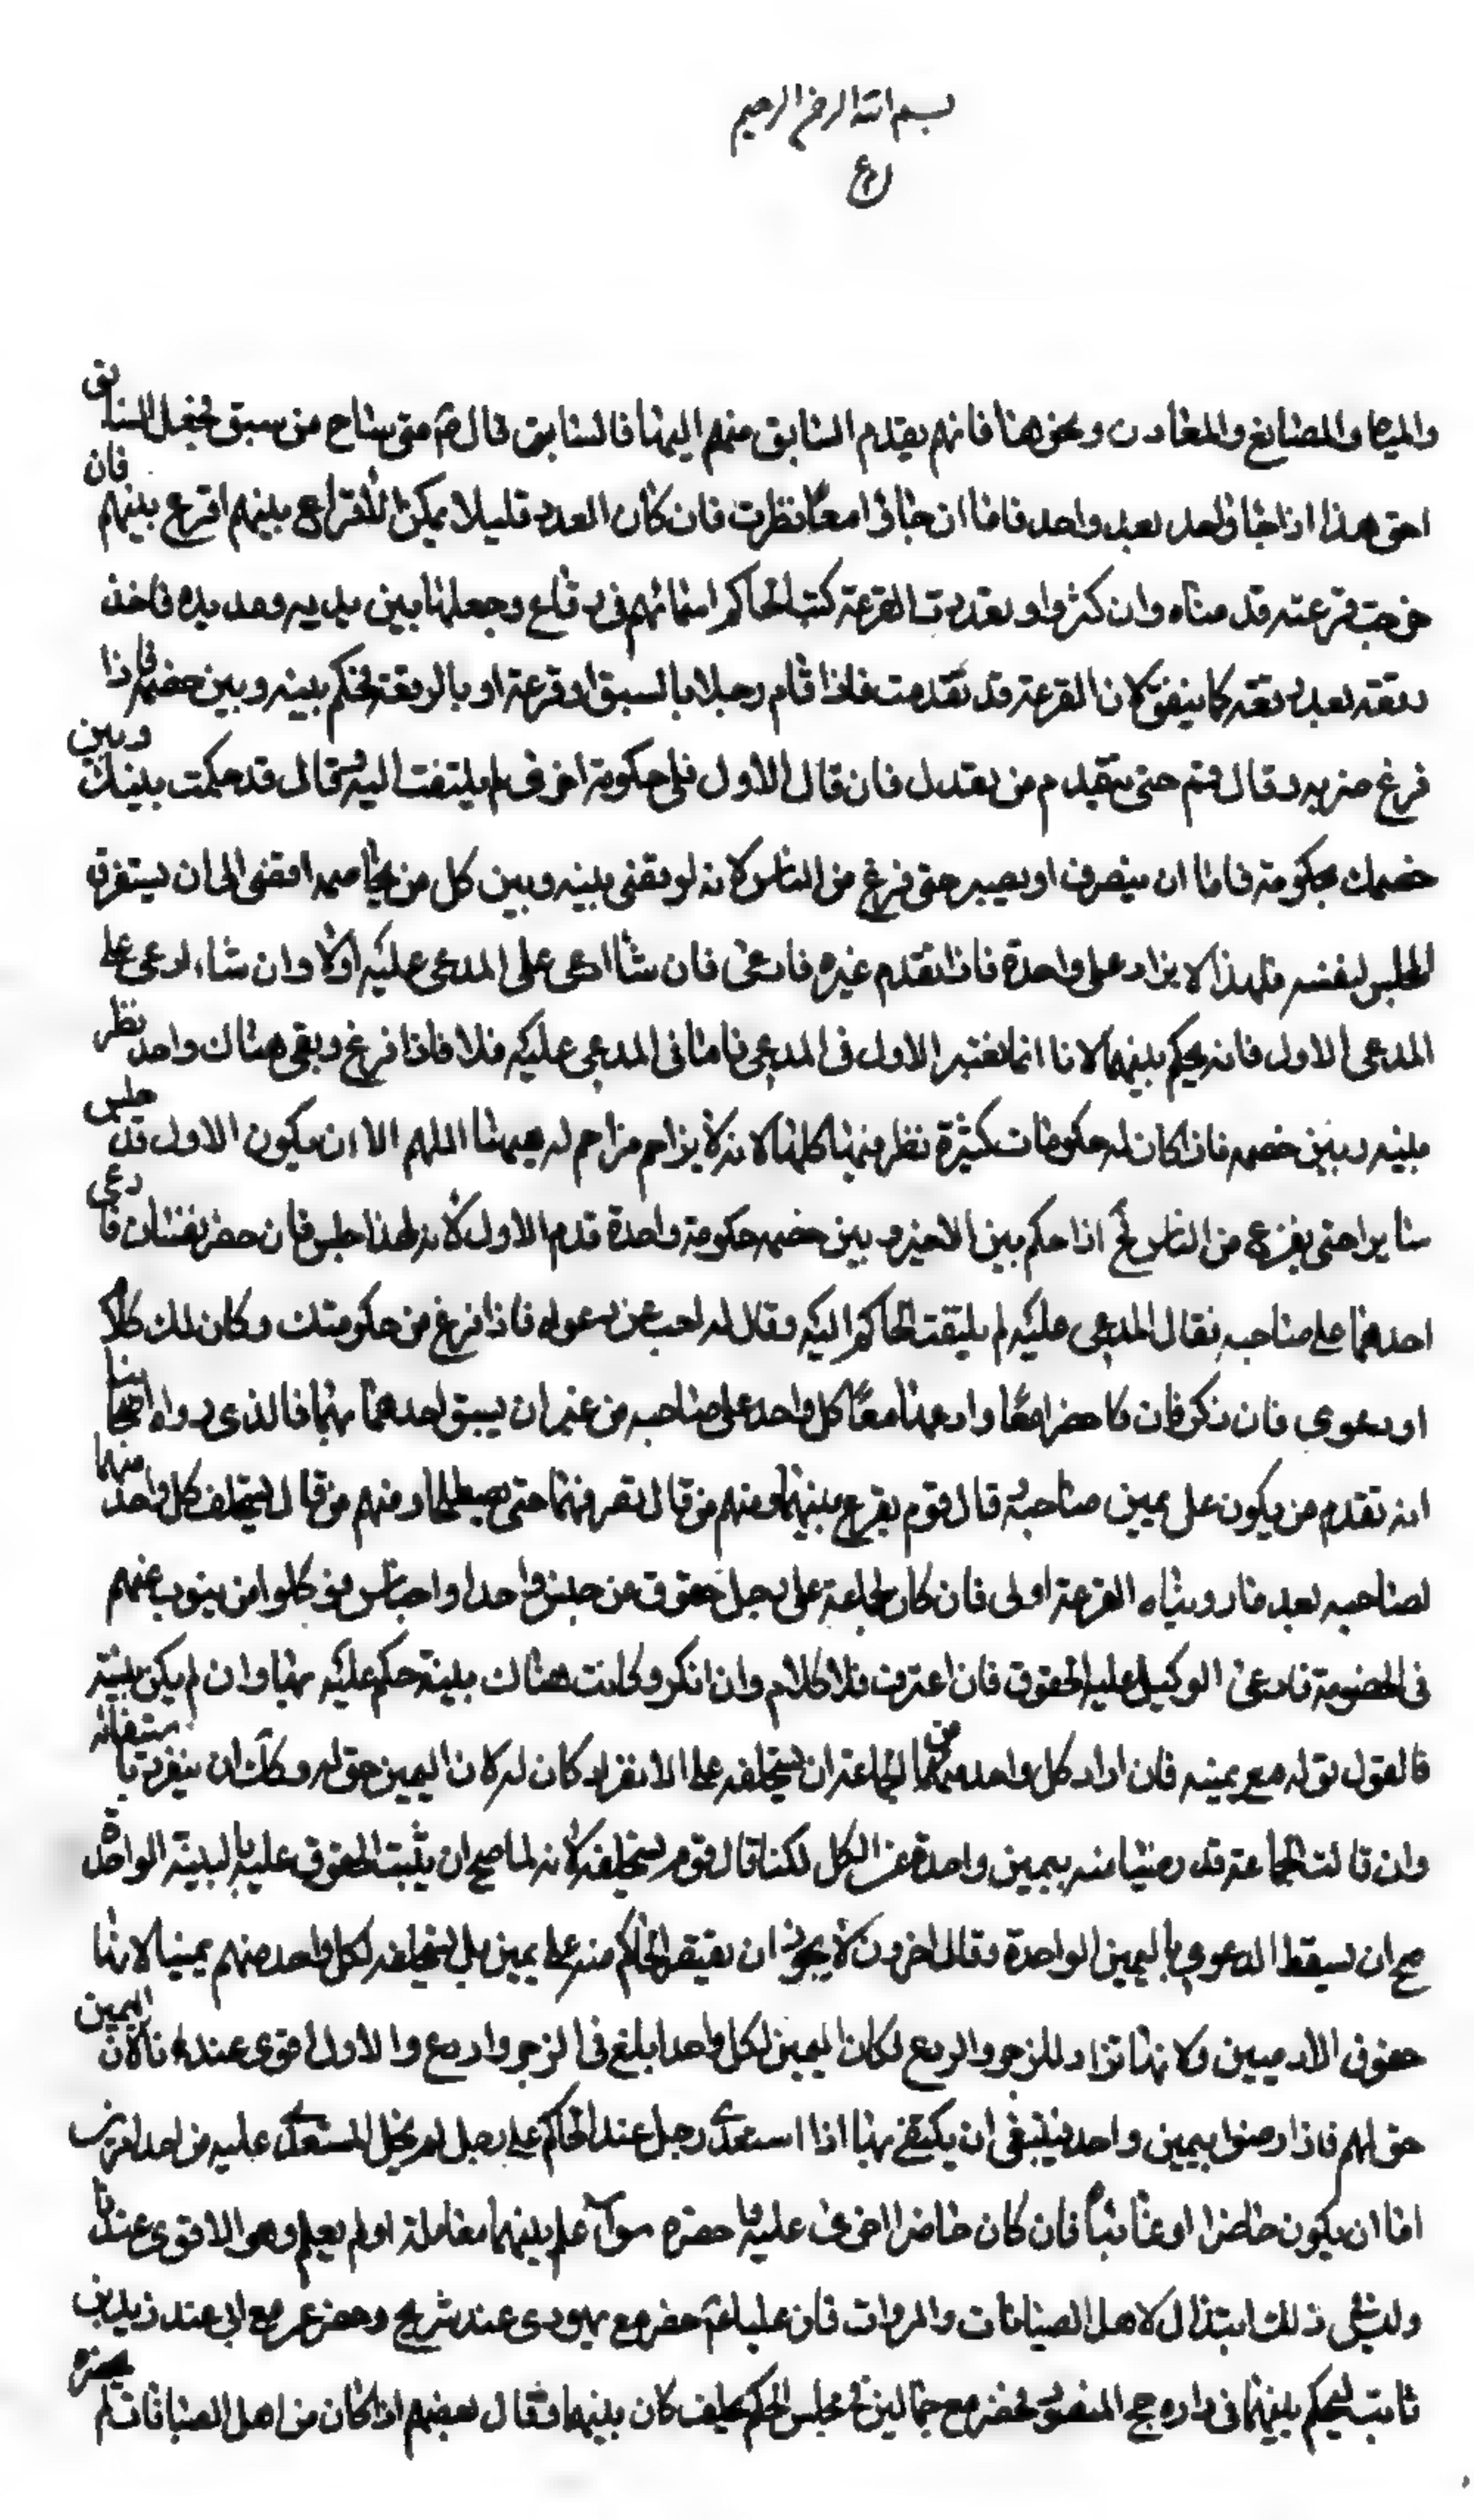 بسم الله الرحمن الرحيم
والمياه والمصانع والمعادن ونحوها فانهم يقدم السابق منهم اليها فالسابق قال منى مناح من سبق فجعل السابق
احق هذا اذا جاء واحد بعد واحد فاما ان جاؤا معا نظرت فان كان العدد قليلا يمكن الاقراع بينهم اقرع بينهم فان
خرجت قرعته قدمناه وان كثروا وتعذرت القرعة كتب الحاكم اسمائهم فى رقاع وجعلها بين يديه ومد يده فاخذ
رقعة بعد رقعة كما يتفق لان القرعة قد تقدمت فاذا قام رجلا بالسبق او قرعة او بالرقعة لحكم بينه وبين خصمه فاذا
فرغ منه قال قم حتى يتقدم من بعدك فان قال الاول فلى حكومة اخرى لم يلتفت اليه وقال قد حكمت بينك وبين
خصمك بحكومة فاما ان ينصرف او يصبر حتى فرغ من الناس لانه لو يقضى بينه وبين كل من يخاصمه افضى الى ان يستغرق
المجلس لنفسه فلهذا لا يزاد على واحدة فاذا تقدم غيره فادعى فان شاء ادعى على المدعى عليه اولا وان شاء ادعى على
المدعى الاول فانه يحكم بينهما لانا انما نعتبر الاول فى المدعى فاما فى المدعى عليه فلا فاذا فرغ وبقى هناك واحد نظر
بينه وبين خصمه فاذا كان له حكومات كثيرة نظر فيها كلها لانه لا يزاحم مزاحم له فيها اللهم الا ان يكون الاول قد جلس
صابرا حتى يفرغ من الناس فح اذا حكم بين الاخير وبين خصمه حكومة واحدة قدم الاول لانه لهذا جلس فان حضر نفسان فادعى
احدهما على صاحبه فقال المدعى عليه لم يلتفت الحاكم اليه وقال له اجب عن دعواه فاذا فرغ من حكومتك وكان لك كلام
او دعوى فان نكر فان كا حضرا معا وادعيا معا كل واحد على صاحبه من غير ان يسبق احدهما بهما فالذى رواه اصحابنا
انه تقدم من يكون على يمين صاحبه قال قوم يقرع بينهما ومنهم من قال تصرفهما حتى يصطلحا ومنهم من قال يستحلف كل واحد منهما
لصاحبه بعد ما رويناه القرعة اولى فان كان لجماعة على رجل حقوق من جنس واحد او اجناس فوكلوا من ينوب عنهم
فى الخصومة فادعى الوكيل عليه الحقوق فان اعترف فلا كلام وان انكر وكانت هناك بينة حكم عليه بها وان لم يكن بينة
فالقول قوله مع يمينه فان اراد كل واحد من الجماعة ان يستحلفه على الانفراد كان له لان اليمين حق له وكان ان ينفرد باستيفائه
وان قالت الجماعة قد رضينا منه بيمين واحدة عن الكل لكنا قال قوم يستحلفه لانه لما صح ان يثبت الحقوق عليه بالبينة الواحدة
صح ان يسقط الدعوى باليمين الواحدة وقال اخرون لا يجوز ان يقتصر الحاكم منه على يمين بل يستحلفه لكل واحد منهم يمينا لانها
حقوق الادميين ولانها تزاد للزجر والردع لكان اليمين لكل واحد ابلغ فى الزجر واردع والاول اقوى عندنا لان اليمين
حق لهم فاذا رضوا بيمين واحد فينبغى ان يكتفى بها اذا استعدى رجل عند الحاكم على رجل لم يخل المستعدى عليه من احد امرين
اما ان يكون حاضرا او غائبا فان كان حاضرا اعدى عليه واحضره سواء علم بينهما معاملة او لم يعلم وهو الاقوى عندنا
وليس فى ذلك ابتذال لاهل الصيانات والمروات فان عليا حضر مع يهودى عند شريح وحضر عمر مع ابى عند زيد بن
ثابت ليحكم بينهما فى داره حج المنصور فحضر مع جمالين مجلس الحكم لحلف كان بينهما وقال بعضهم اذا كان من اهل الصيانات لم يحضره